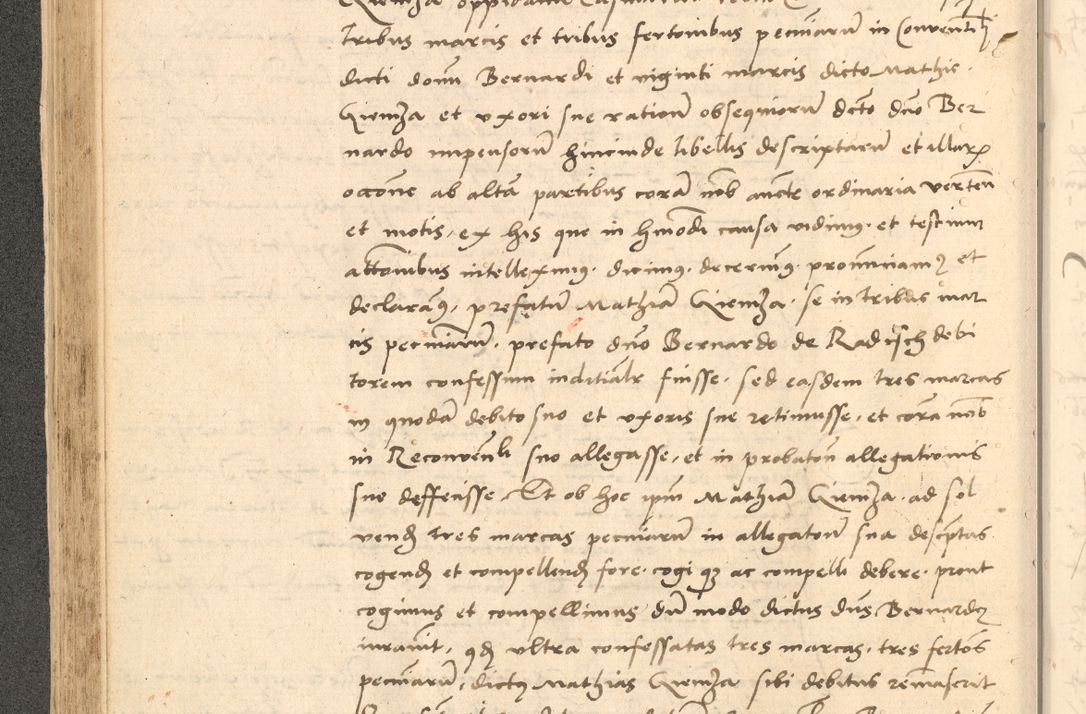 tribus marcis et tribus fertonibus pecuniarū in Conventi
dicti domi Bernardi et viginti marcis dicto Mathie
Giemza et uxori sue rationū obsequiorū dcto dno Ber
nardo impensorū hincinde libellis descriptarū et illarx
occone ab altā partibus corā nob aucte ordinaria verten
et motis, ex his que in hmodi causa vidimꝰ et testium
attonibus intelleximꝰ dicimꝰ decernimꝰ pronunciamꝰ et
declaramꝰ, prefatū Mathiā Giemza se in tribus mar
cis pecuniarū, prefato dno Bernardo de Radisch debi
torem confessum inditialr fuisse, sed easdem tres marcas
in quodā debito suo et uxoris sue retinuisse, et corā nob
in Reconvenli suo allegasse, et in probatōn allegationis
sue deffecisse Et ob hoc ipm Mathiā Giemza ad sol
vend tres marcas pecuniarū in allegatoni sua descptas
cogend et compellend fore cogi qꝫ ac compelli debere prout
cogimus et compellimus dū modo dictus dns Bernardꝰ
iuravit, qd ultra confessatas tres marcas, tres fertōs
pecuniarū, dictꝰ Mathias Giemza sibi debitus remāserit